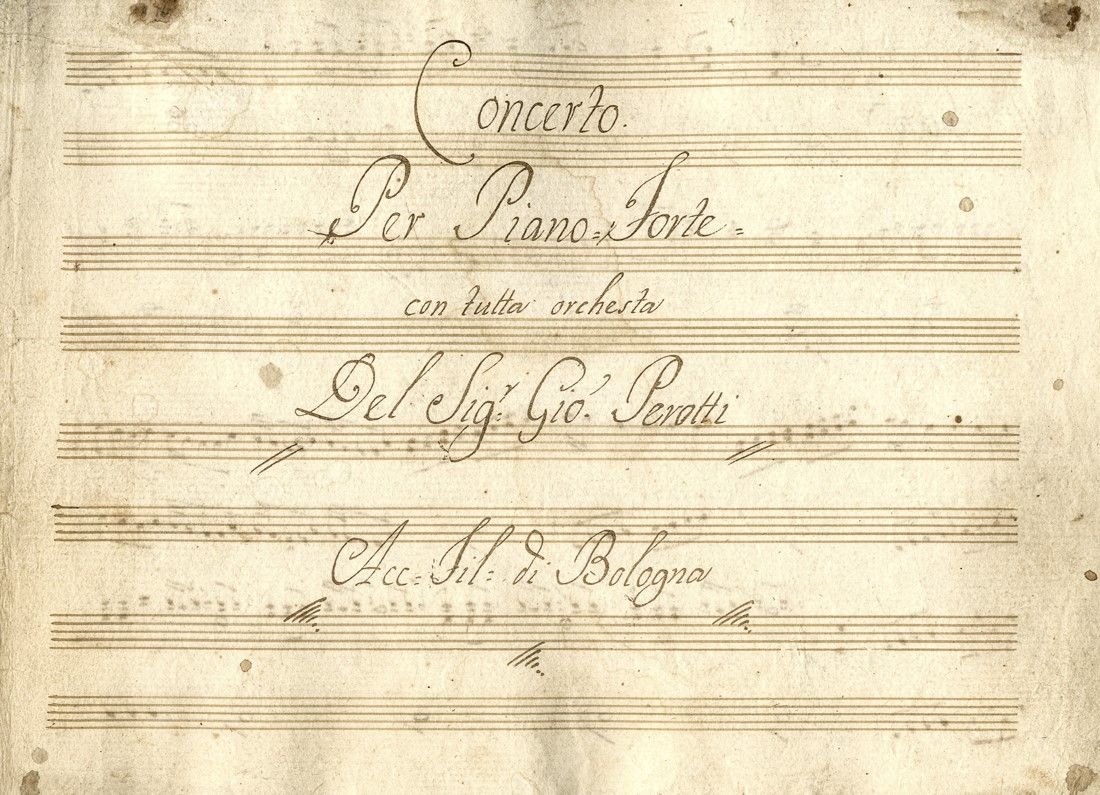 Concerto.
Per Piano=Forte=
con tutta orchesta
Del Sig.r Gio. Perotti
Acc= Fil= di Bologna